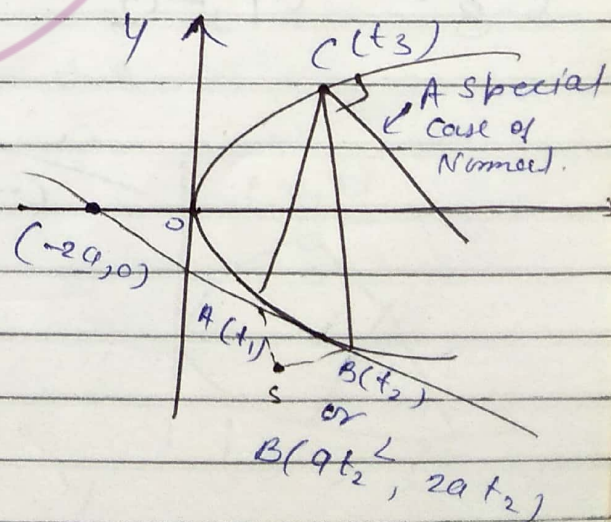 y
C(t3)
A Special
Case of
Normal.
O
(-2a,0)
A(t1)
S
B(t2)
or
B(at2², 2at2)